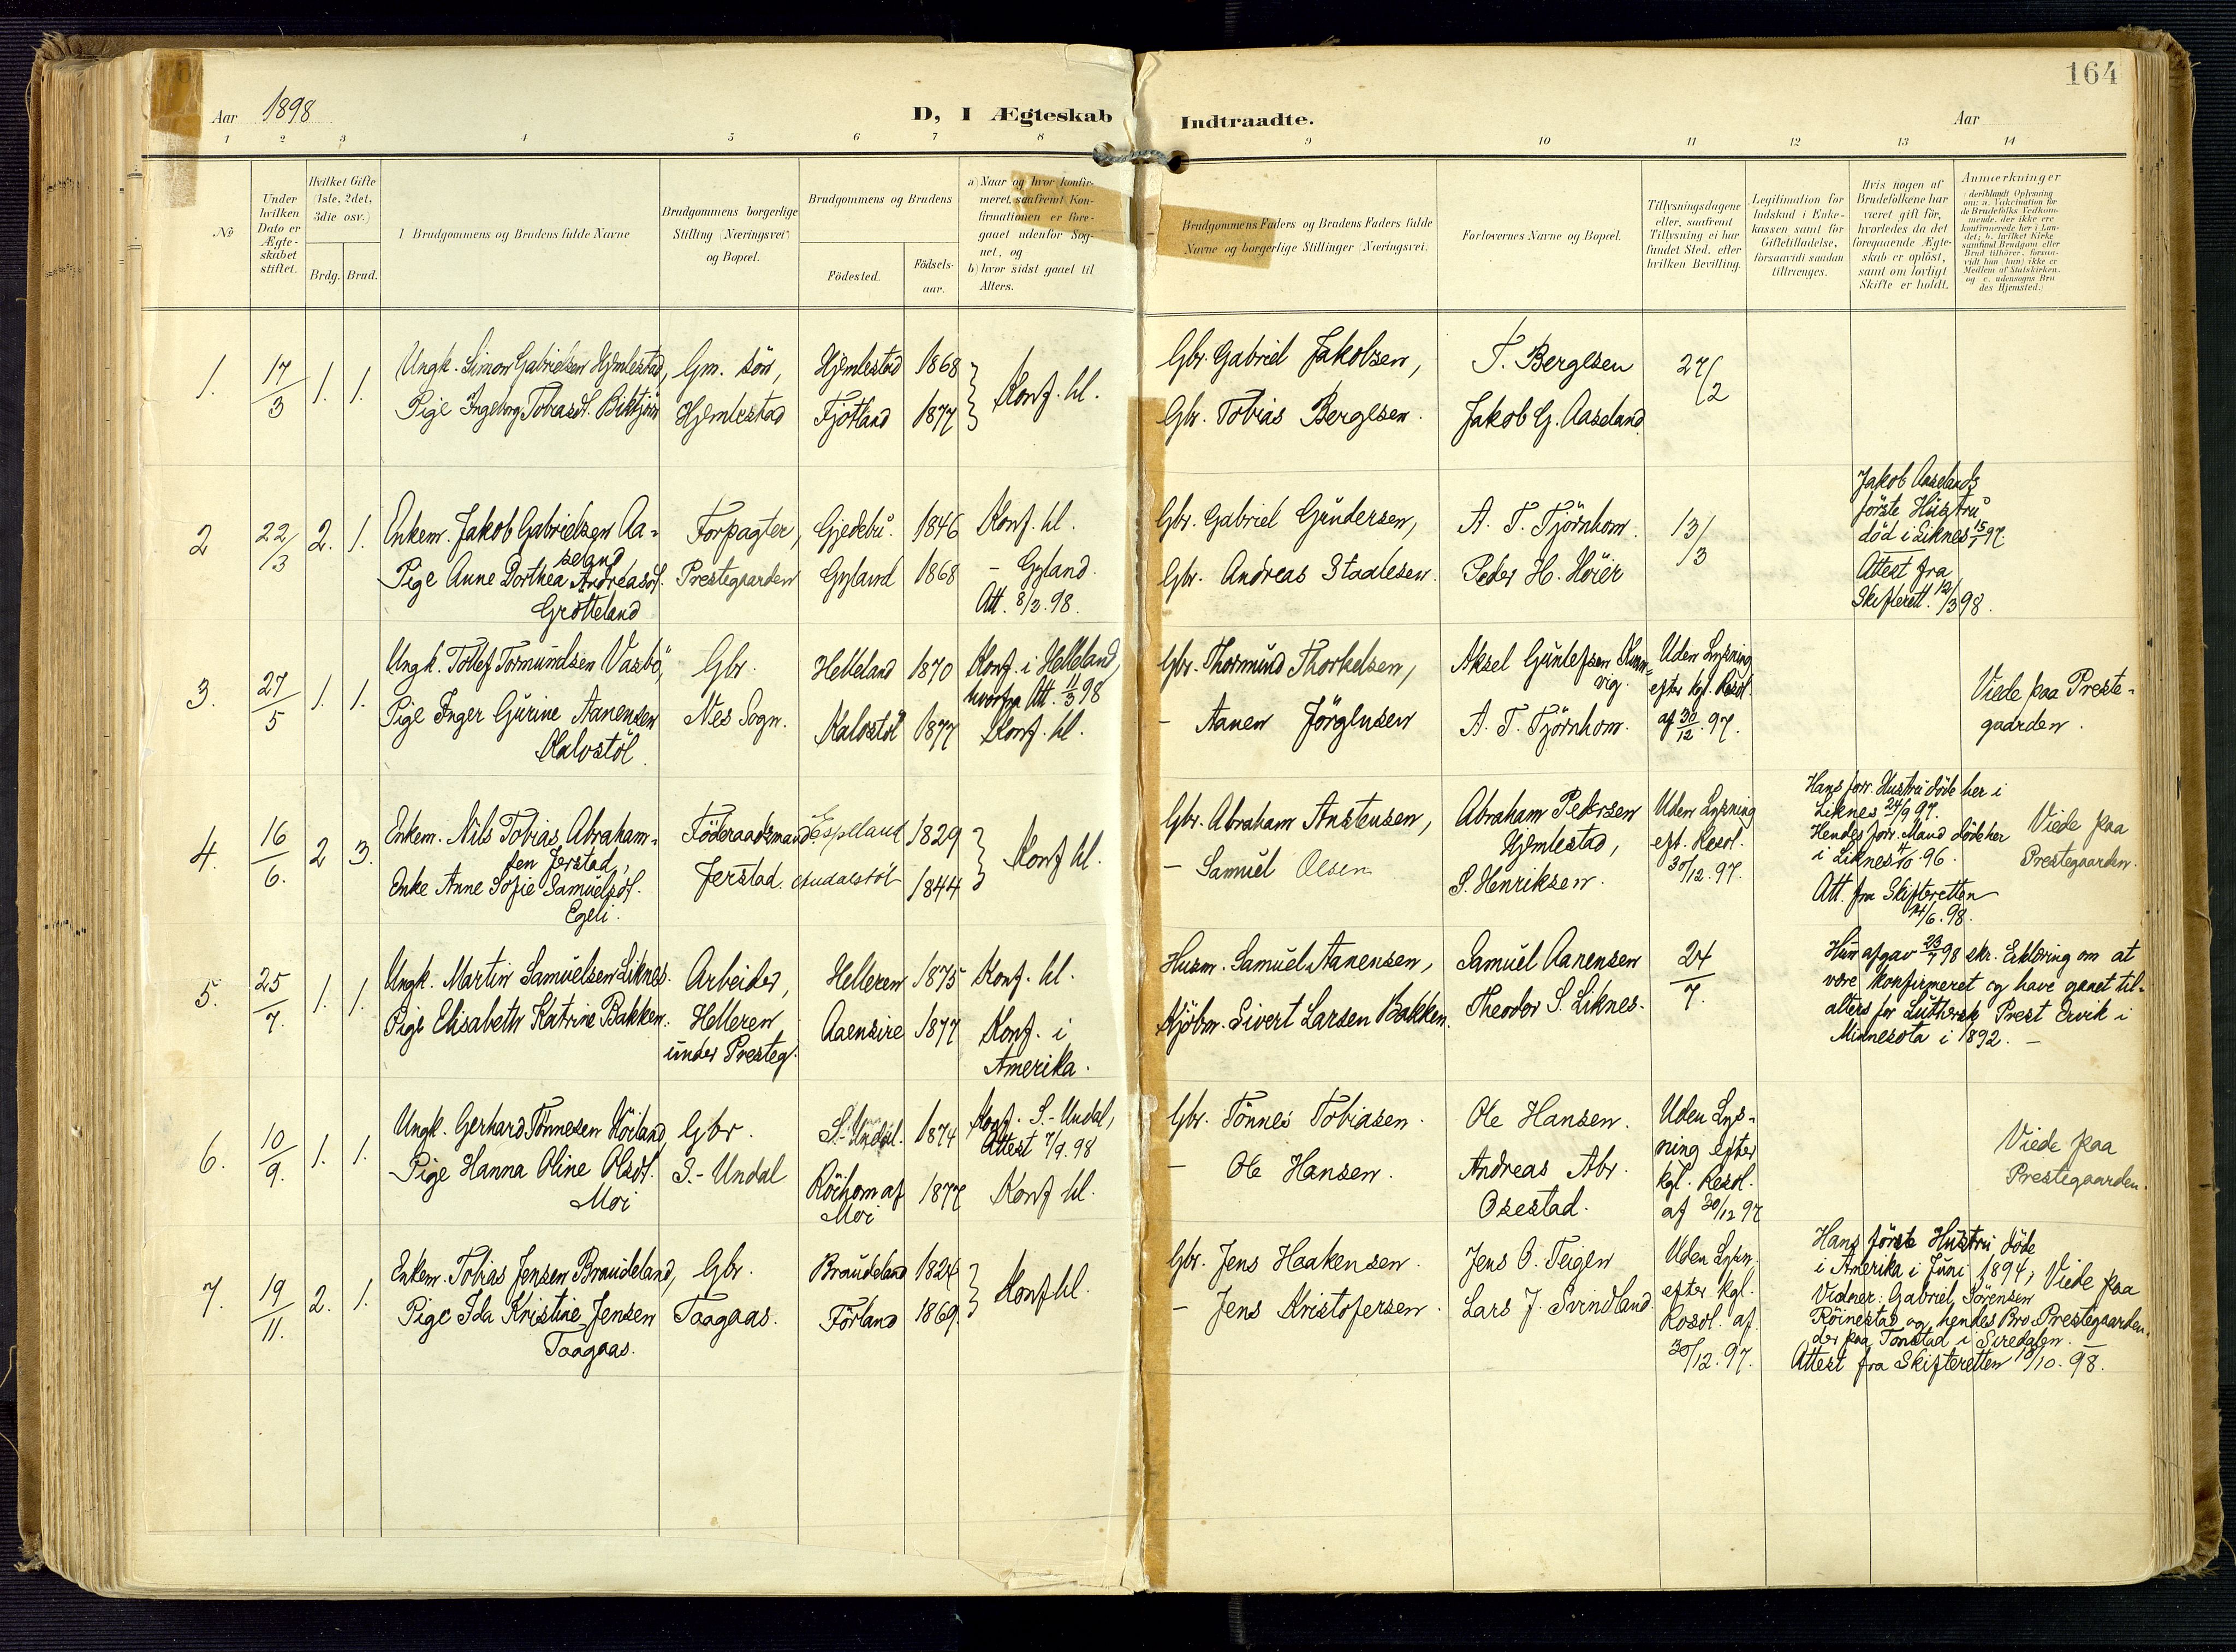 164
Aar 1898
D, I Ægteskab Indtraadte.
Aar
1 2 3 4 5 6 7 8 9 10 11 12 13 14
No
Under hvilken Dato er Ægteskabet stiftet.
Hvilket Gifte (1ste, 2det, 3die osv.)
Brdg. Brud.
Brudgommens og Brudens fulde Navne
Brudgommens borgerlige Stilling (Næringsvei) og Bopæl.
Brudgommens og Brudens
Födested.
Födselsaar.
a) Naar og hvor konfirmeret, saafremt Konfirmationen er foregaaet udenfor Sognet, og
b) hvor sidst gaaet til Alters.
Brudgommens Faders og Brudens Faders fulde Navne og borgerlige Stillinger (Næringsvei.
Forlovernes Navne og Bopæl.
Tillysningsdagene eller, saafremt Tillysning ei har fundet Sted, efter hvilken Bevilling.
Legitimation for Indskud i Enkekassen samt for Giftetilladelse, forsaavidt saadan tiltrænges.
Hvis nogen af Brudefolkene har været gift før, hvorledes da det foregaaende Ægteskab er oplöst, samt om lovligt Skifte er holdt.
Anmerkninger
1. 17/3 1. 1.
Ungk. Simon Gabrielsen Hjemlestad,
Pige Ingeborg Tobiasdt. Biktjörn
Gm. sön,
Hjemlestad
Hjemlestad 1868
Fjotland 1877
Konf. hl.
Gbr. Gabriel Jakobsen,
Gbr. Tobias Bergesen.
T. Bergesen
Jakob G. Aaseland.
27/2
2 22/3 2. 1.
Enkem. Jakob Gabrielsen Aa-
seland
Pige Anne Dorthea Andreasdt.
Grötteland
Forpagter,
Prestegaarden
Gjedebu. 1846
Gyland 1868
Konf. hl.
- Gyland.
Att. 8/3. 98.
Gbr. Gabriel Gundersen,
Gbr. Andreas Staalesen.
A. T. Tjörnhom.
Peder H. Höier
13/3
Jakob Aaselands
förste Hustru
död i Liknes 15/1 97.
Attest fra
Skifterett. 12/3 98.
3. 27/5 1. 1.
Ungk. Tollef Tormundsen Vasbö,
Pige Inger Gurine Aanensen
Kalvstöl.
Gbr.
Nes Sogn.
Helleland 1870
Kalvstöl 1877
Konf. i Helleland,
hvorfra Att. 11/3 98
Konf. hl.
Gbr. Thormund Thorkelsen,
- Aanen Jörgensen
Aksel Gunlefsen Kum-
vig.
A. T. Tjörnhom.
Uden Lysning
efter kgl. Resol.
af 30/12. 97.
Viede paa Preste-
gaarden.
4. 16/6. 2 3.
Enkem. Nils Tobias Abraham-
sen Jerstad,
Enke Anne Sofie Samuelsdt.
Egeli.
Föderaadsmand
Jerstad.
Espeland 1829
1844
Konf hl.
Gbr. Abraham Anstensen,
- Samuel Olsen
Abraham Pedersen
Hjemlestad,
S. Henriksen.
Uden Lysning
eft. Resol.
30/12. 97.
Hans forr. Hustru döde her i
Liknes 24/9 97.
Hendes forr. Mand döde her
i Liknes 4/10. 96.
Att. fra Skifteretten
14/6. 98.
Viede paa
Prestegaarden.
5. 25/7. 1. 1.
Ungk. Martin Samuelsen Liknes.
Pige Elisabeth Katrine Bakken.
Arbeider,
Helleren
under Presteg.
Helleren 1875
Aaensire 1877
Konf. hl.
Konf. i
Amerika.
Husm. Samuel Aanensen,
Kjöbm. Sivert Larsen Bakken.
Samuel Aanensen
Theodor S. Liknes.
24/7.
Hun afgav 23/7 98 skr. Erklæring om at
være konfirmeret og have gaaet til-
alters for Luthersk Prest Ervik i
Minnesota i 1892. -
6. 10/9. 1. 1.
Ungk. Gerhard Tönnesen Höiland,
Pige Hanna Oline Olsdt.
Moi
Gbr.
S.- Undal
S.- Undal. 1874
Röihom af 1877
Moi
Konf. S.- Undal,
Attest 7/9. 98
Konf hl.
Gbr. Tönnes Tobiasen.
- Ole Hansen.
Ole Hansen.
Andreas Abr.
Osestad.
Uden Lys-
ning efter
kgl. Resol.
af 30/12 97
Viede paa
Prestegaarden.
7. 19/11. 2. 1.
Enkem. Tobias Jensen Braudeland,
Pige Ida Kristine Jensen
Taagaas.
Gbr.
Taagaas.
Braudeland 1824
Förland 1869.
Konf hl.
Gbr. Jens Haakensen.
- Jens Kristofersen.
Jens O. Teigen
Lars J. Svindland.
Uden Lysn.
efter kgl.
Resol. af
30/12. 97.
Hans förste Hustru döde
i Amerika i Juni 1894;
Vidner: Gabriel Sörensen
Röinestad og hendes Bro-
der paa Tonstad i Siredalen.
Attest fra Skifteretten 18/10. 98.
Viede paa
Prestegaarden.